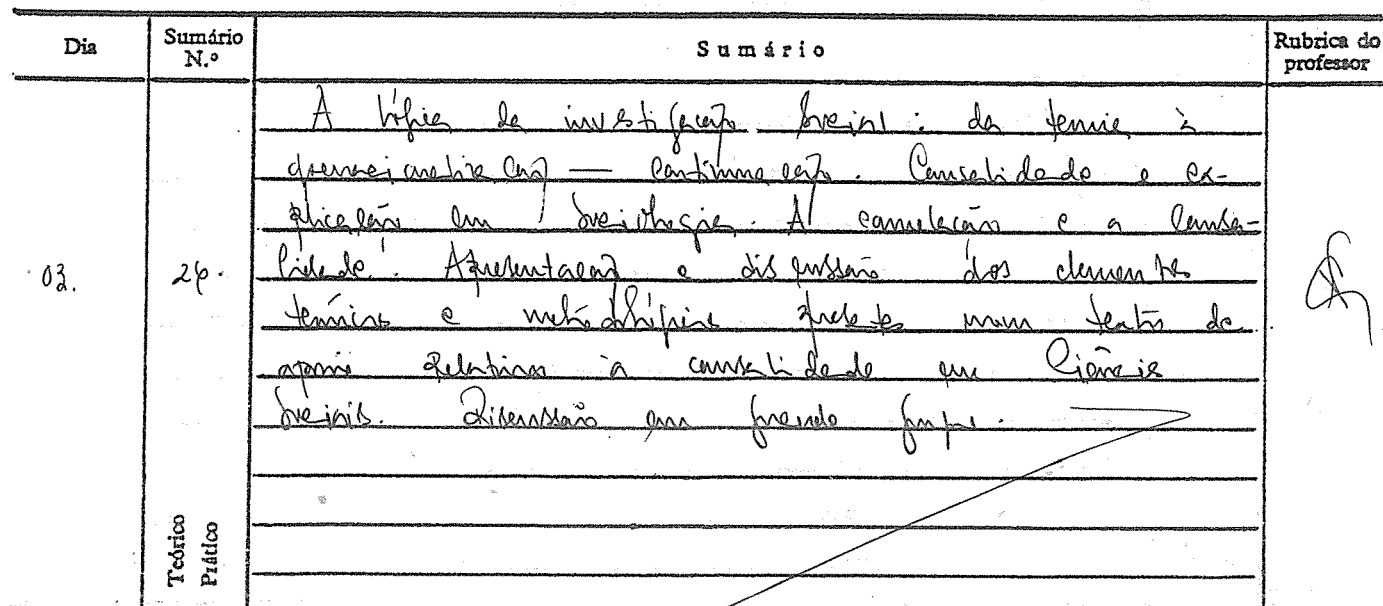 Dia
Sumário N.º
Sumário
Rubrica do professor
A lógica da investigação social: da teoria à
operacionalização — continuação. Causalidade e ex-
plicação em sociologia. A correlação e a causa-
lidade. Apresentação e discussão dos elementos
teóricos e metodológicos num texto de
apoio relativos à causalidade em Ciências
Sociais. Discussão em grande grupo.
03.
Teórico
Prático